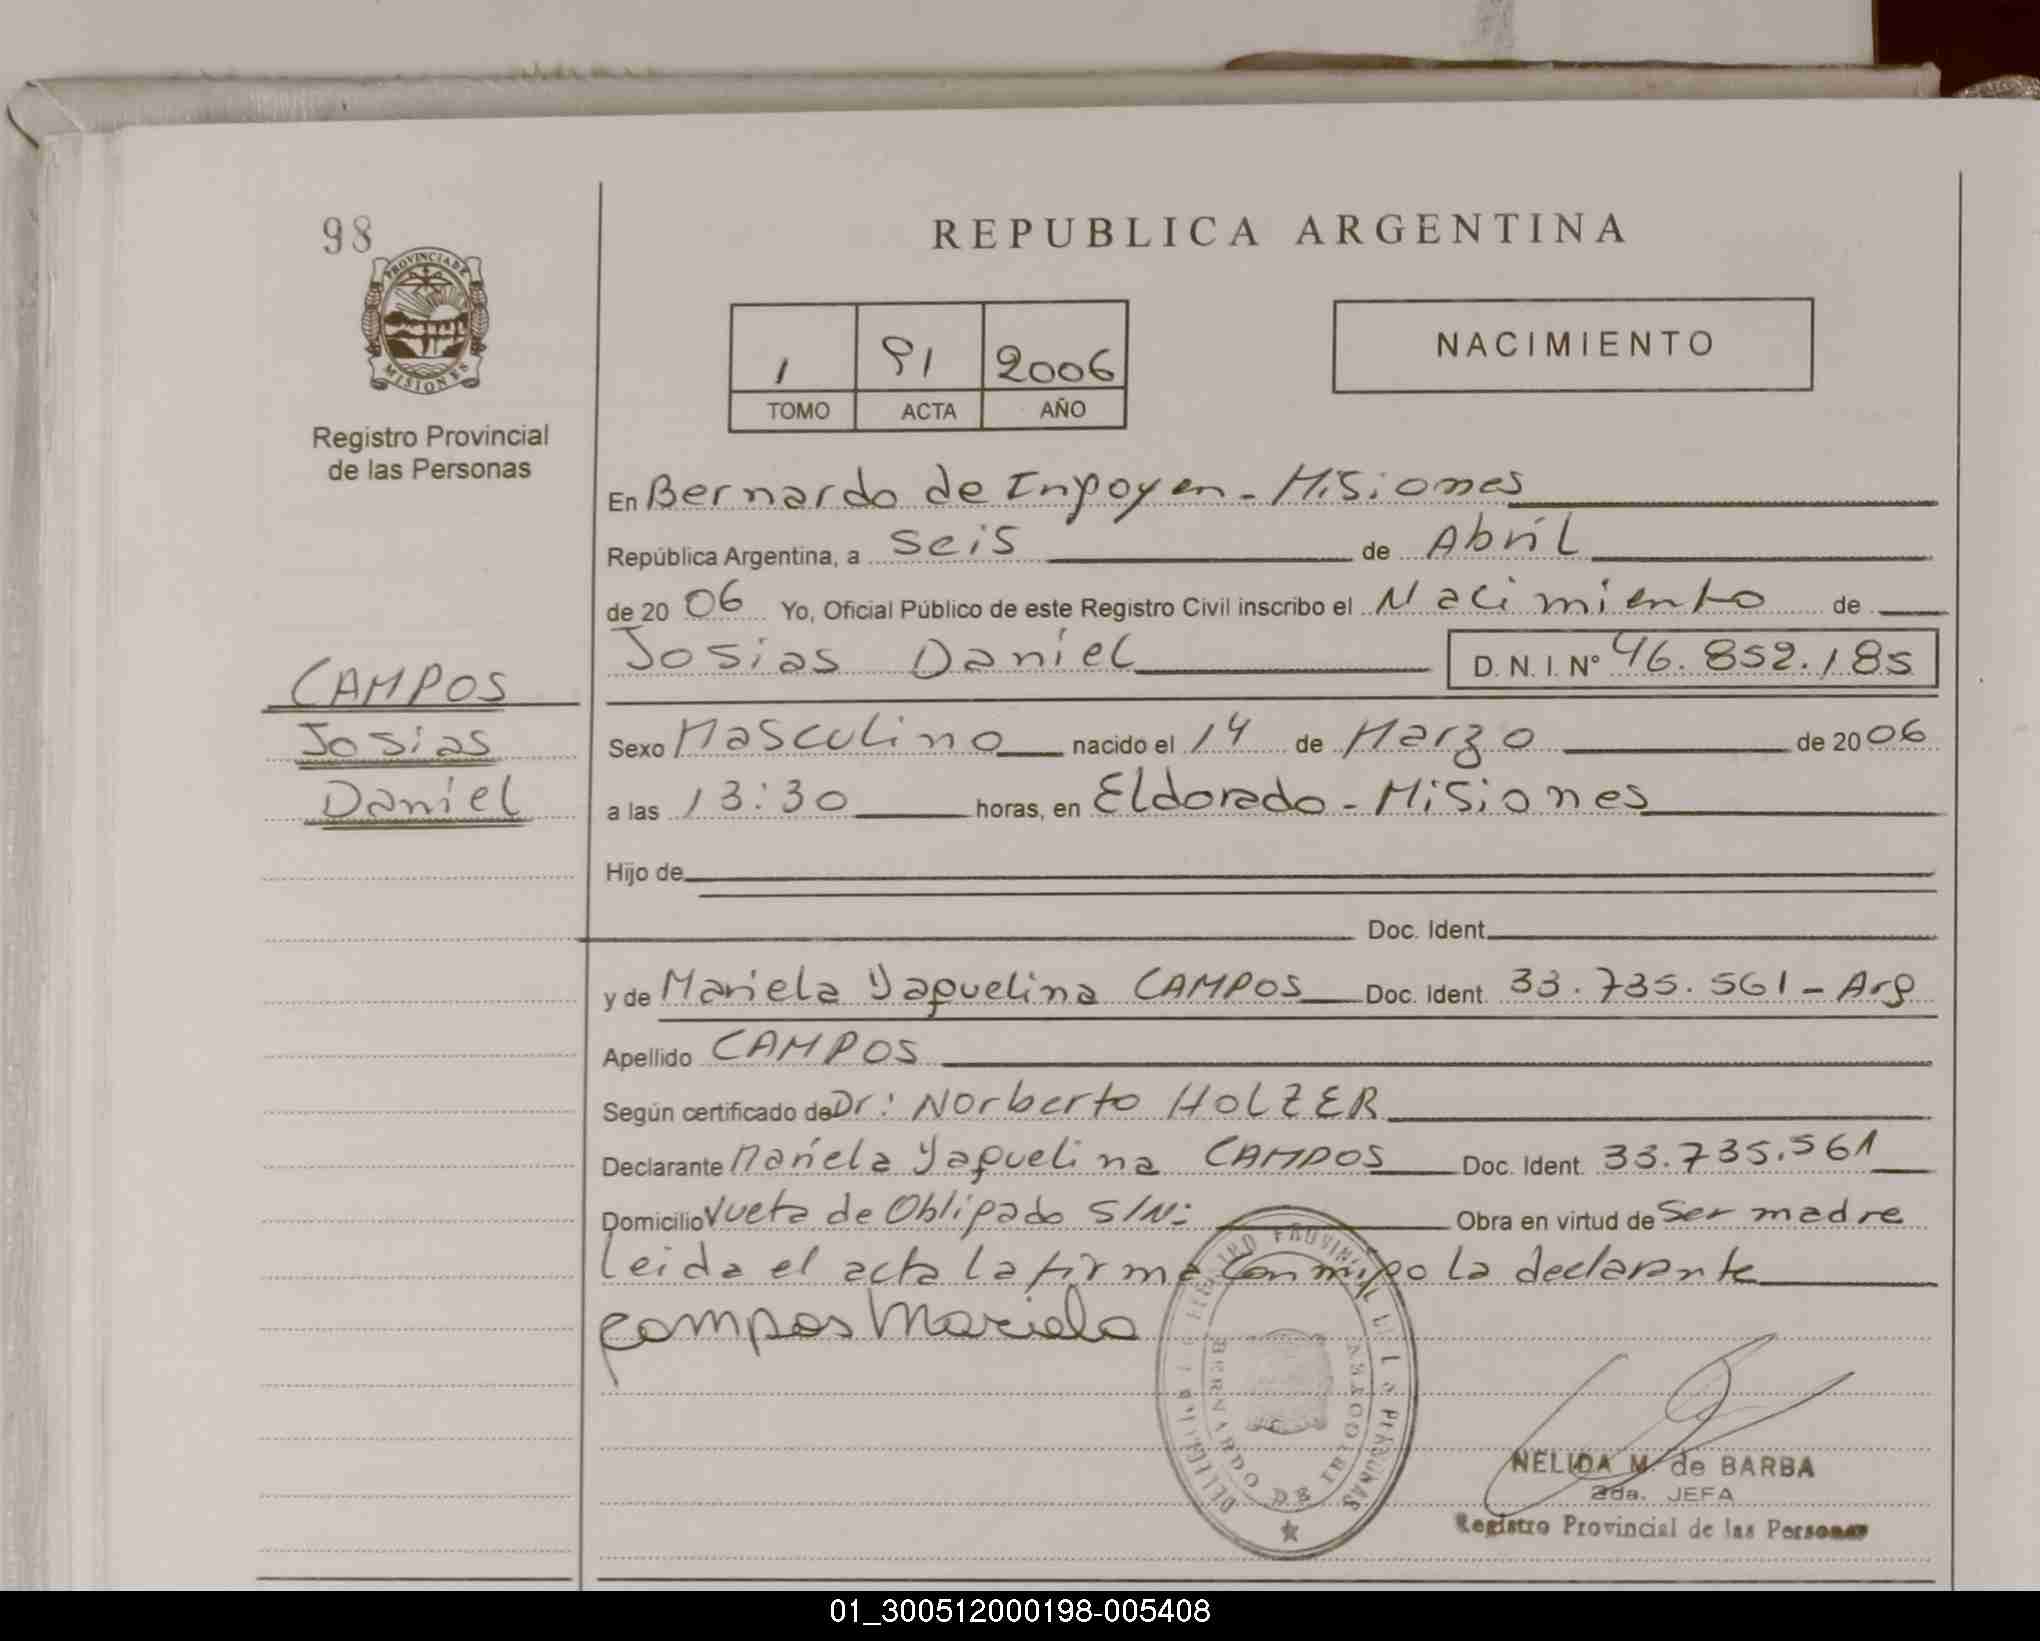 98
REPUBLICA ARGENTINA
PROVINCIA DE
MISIONES
1 91 2006
TOMO ACTA AÑO
NACIMIENTO
Registro Provincial
de las Personas
En Bernardo de Irigoyen - Misiones
República Argentina, a seis de Abril
de 20 06 Yo, Oficial Público de este Registro Civil inscribo el Nacimiento de
Josias Daniel D. N. I. N° 46.852.185
CAMPOS
Josias
Daniel
Sexo Masculino nacido el 14 de Marzo de 20 06
a las 13:30 horas, en Eldorado - Misiones
Hijo de
Doc. Ident.
y de Mariela Yaquelina CAMPOS Doc. Ident. 33.735.561 - Arg
Apellido CAMPOS
Según certificado de Dr: Norberto HOLZER
Declarante Mariela Yaquelina CAMPOS Doc. Ident. 33.735.561
Domicilio Vuelta de Obligado S/N: Obra en virtud de Ser madre
Leida el acta la firma conmigo la declarante
Campos Mariela
REGISTRO PROVINCIAL DE LAS PERSONAS
BERNARDO DE IRIGOYEN
NELIDA M. de BARBA
2da. JEFA
Registro Provincial de las Personas
01_300512000198-005408